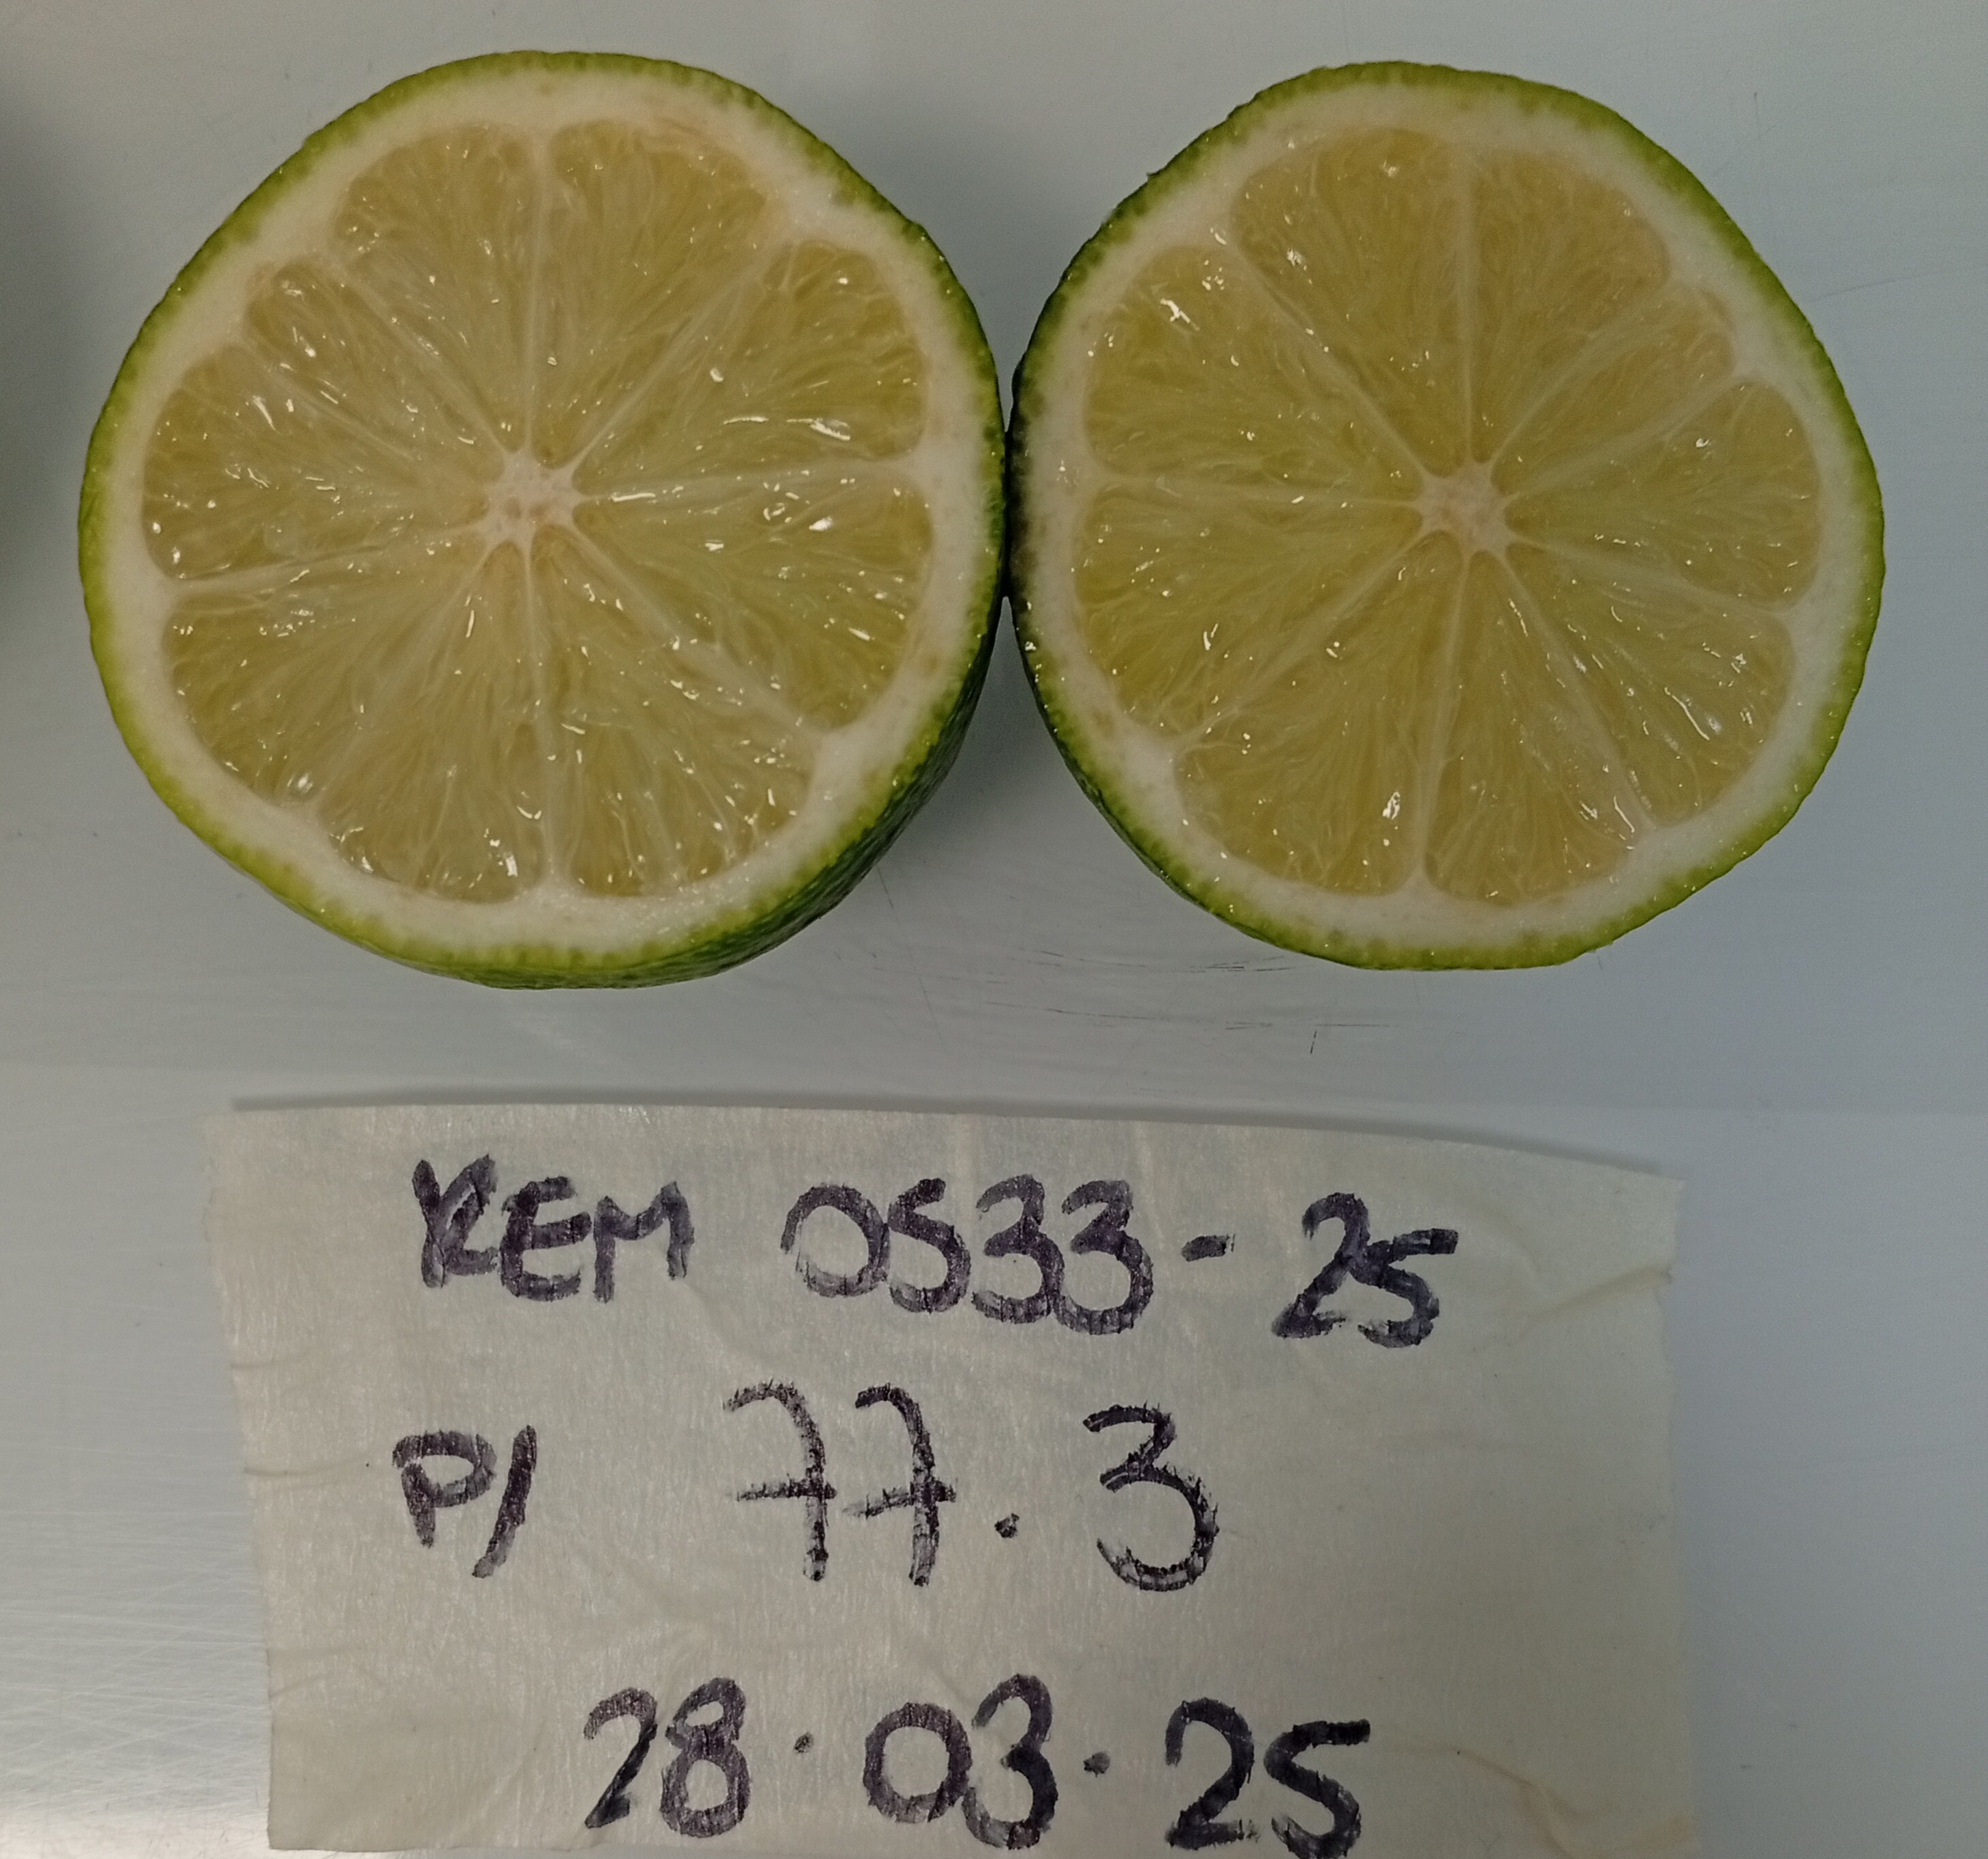 REM 0533-25
P/ 77.3
28.03.25